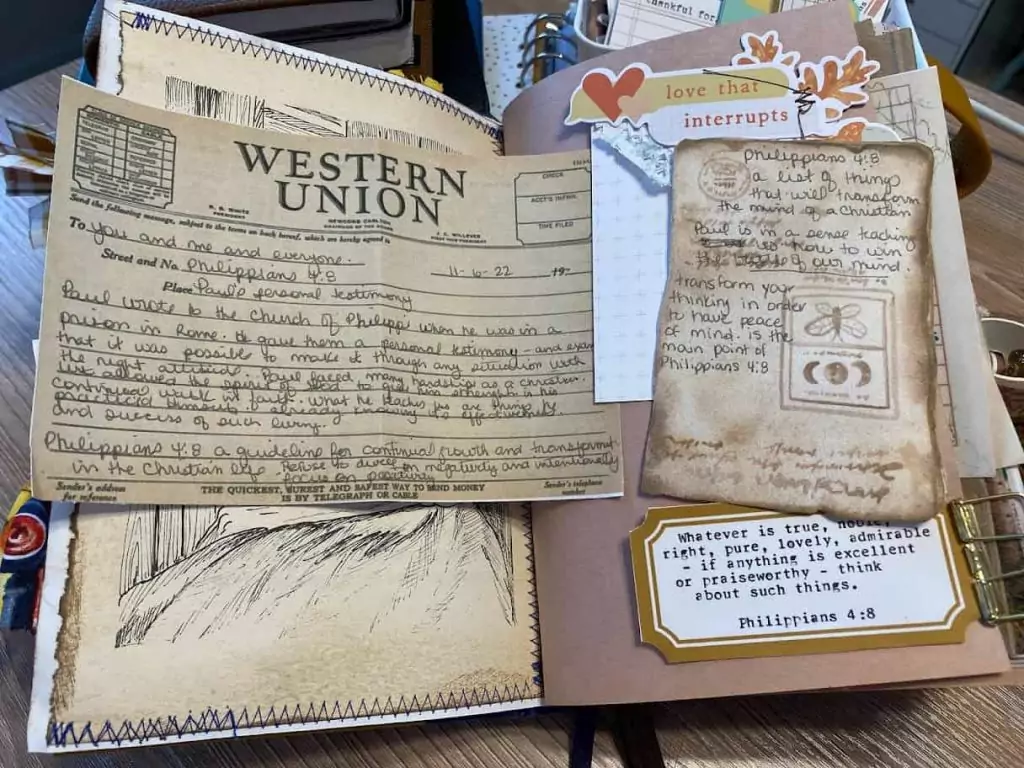 thankful for
WESTERN
UNION
R. B. WHITE
PRESIDENT
NEWCOMB CARLTON
CHAIRMAN OF THE BOARD
J. C. WILLEVER
FIRST VICE-PRESIDENT
CHECK
ACCT'G INFMN.
TIME FILED
Send the following message, subject to the terms on back hereof, which are hereby agreed to
To You and me and everyone.
Street and No. Philippians 4:8
11-6-22 19
Place Paul's personal testimony
Paul wrote to the Church of Philippi when he was in a
prison in Rome. He gave them a personal testimony - and
that it was possible to make it through any situation with
the right attitude. Paul faced many hardships as a christian.
allowed the spirit of God to strength in his
continued walk in faith. What he teaches us are things he
practiced himself. already knowing its effectiveness
and success of such living.
Philippians 4:8 a guideline for continual growth and
in the Christian life. Refuse to dwell on negativity and intentionally
focus on positivity
Sender's address
for reference
THE QUICKEST, SUREST AND SAFEST WAY TO SEND MONEY
IS BY TELEGRAPH OR CABLE
Sender's telephone
number
love that
interrupts
Philippians 4:8
a list of things
that will transform
the mind of a Christian
Paul is in a sense teaching
us how to win
the of our mind.
transform your
thinking in order
to have peace
of mind. is the
main point of
Philippians 4:8
Whatever is true, noble,
right, pure, lovely, admirable
- if anything is excellent
or praiseworthy - think
about such things.
Philippians 4:8